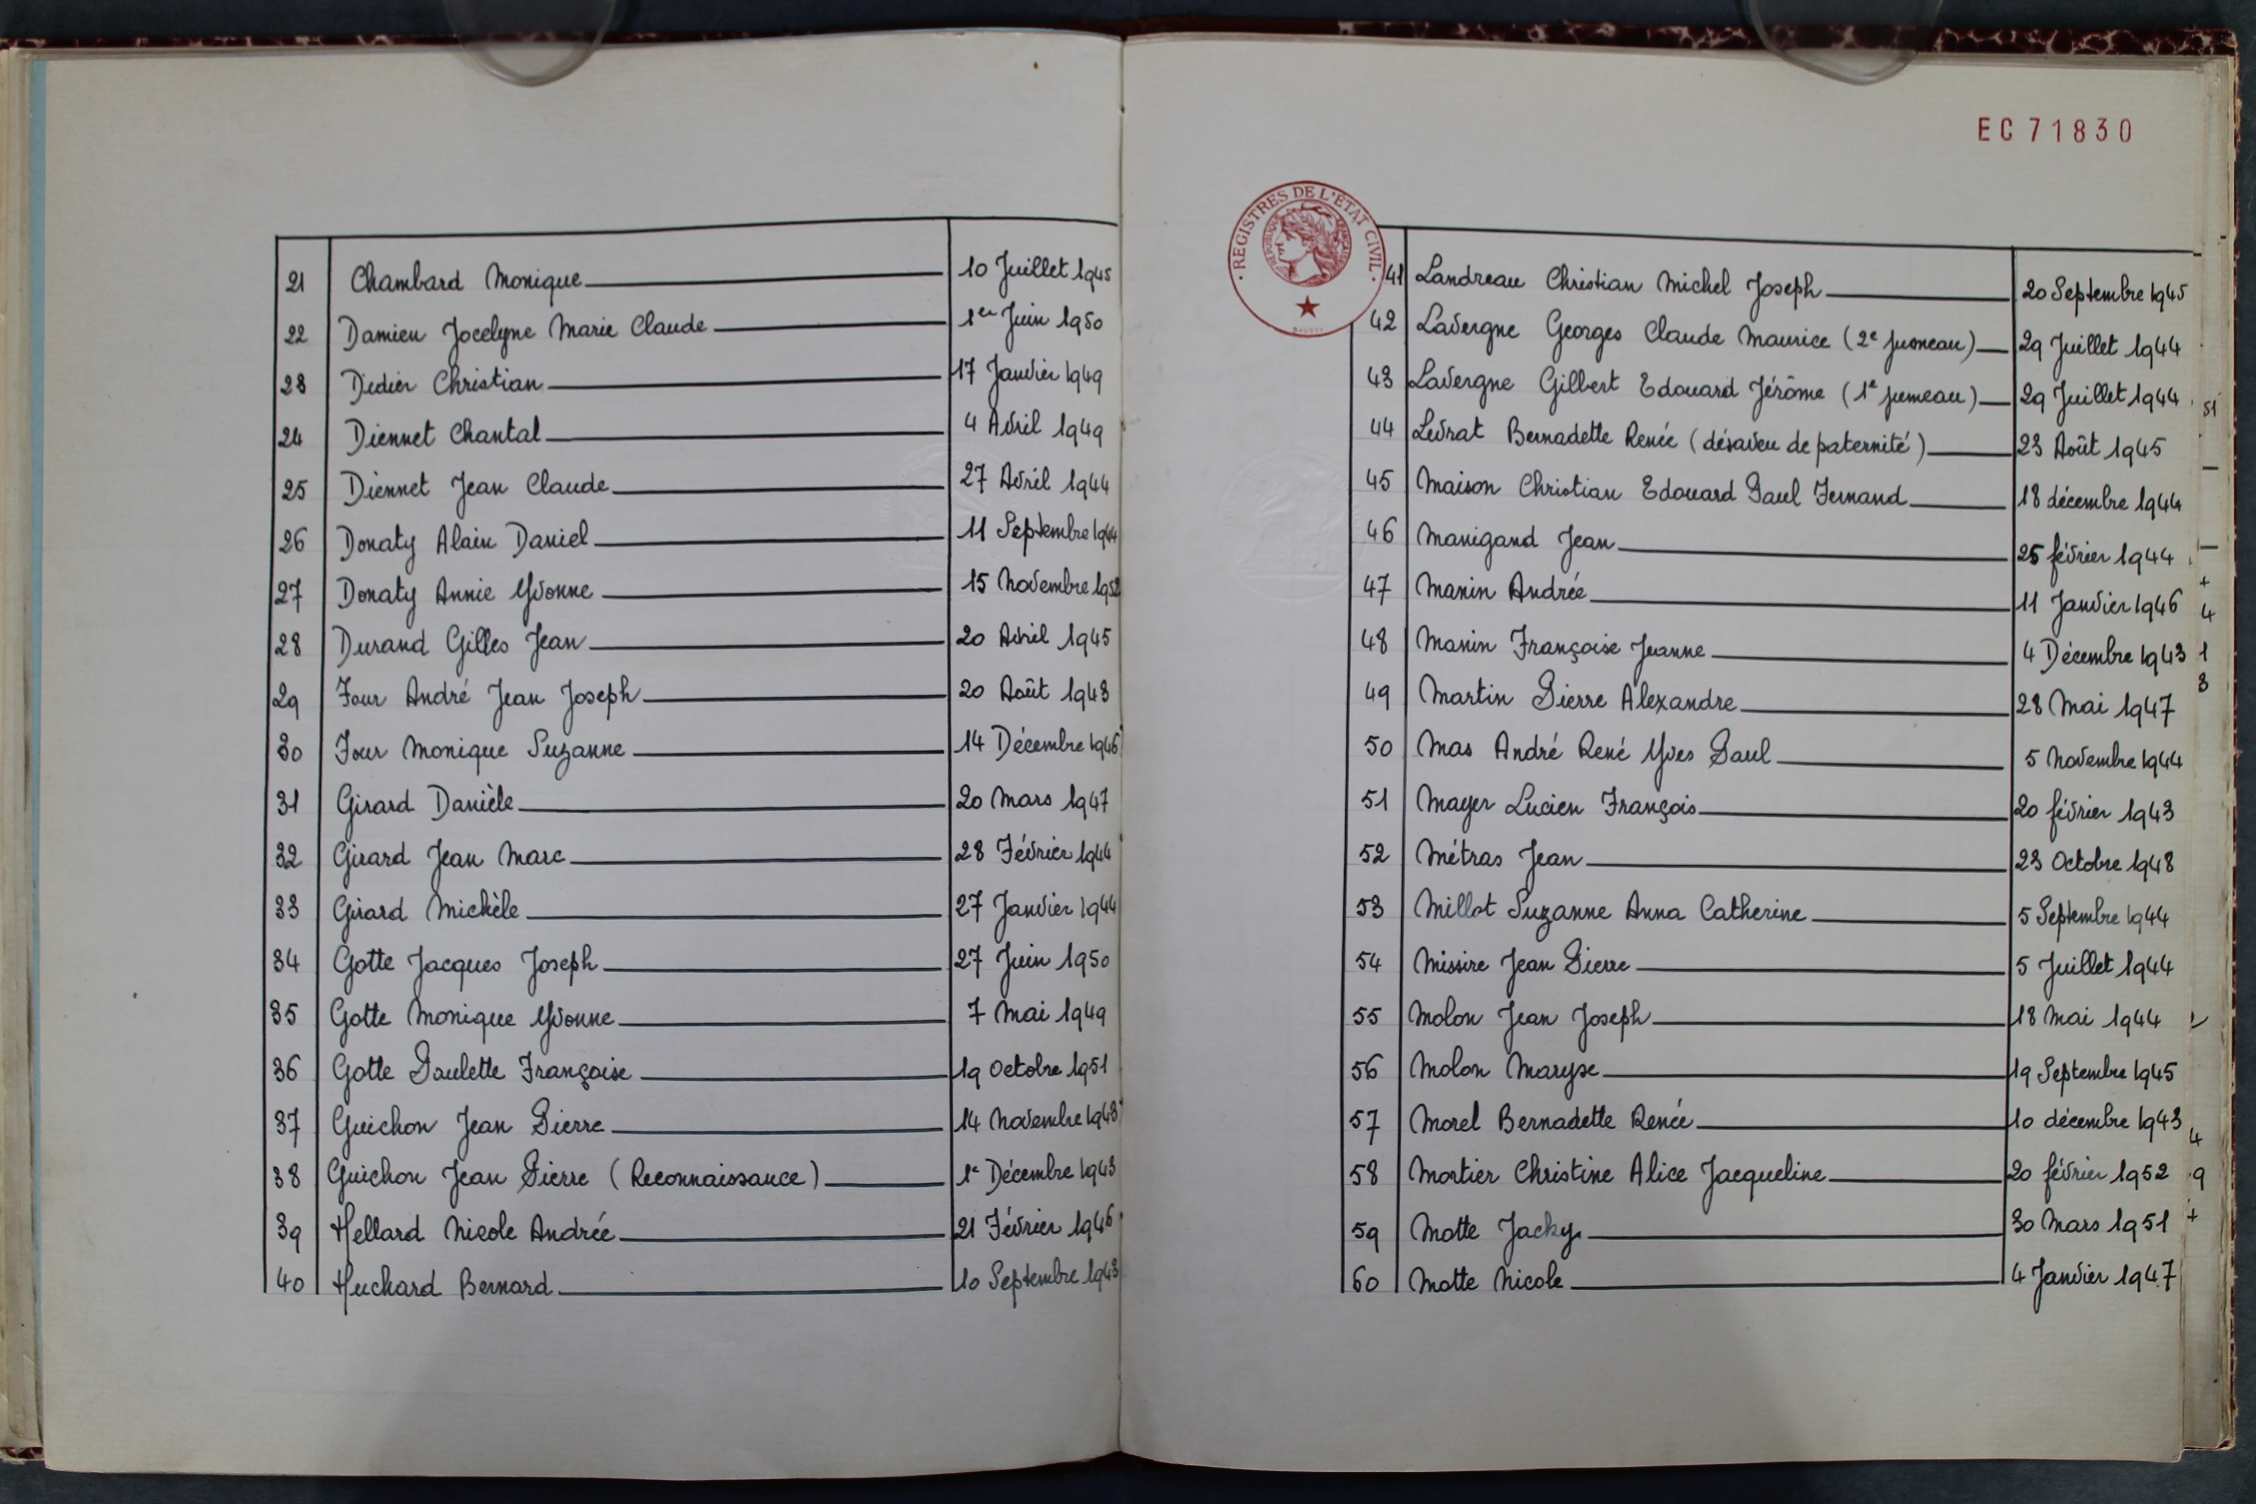 21 Chambard Monique 10 Juillet 1945
22 Damien Jocelyne Marie Claude 1er Juin 1950
23 Didier Christian 17 Janvier 1949
24 Diennet Chantal 4 Avril 1949
25 Diennet Jean Claude 27 Avril 1944
26 Donaty Alain Daniel 11 Septembre 1944
27 Donaty Annie Yvonne 15 Novembre 1952
28 Durand Gilles Jean 20 Avril 1945
29 Four André Jean Joseph 20 Août 1943
30 Four Monique Suzanne 14 Décembre 1946
31 Girard Danièle 20 Mars 1947
32 Girard Jean Marc 28 Février 1944
33 Girard Michèle 27 Janvier 1944
34 Gotte Jacques Joseph 27 Juin 1950
35 Gotte Monique Yvonne 7 Mai 1949
36 Gotte Paulette Françoise 19 Octobre 1951
37 Guichon Jean Pierre 14 Novembre 1943
38 Guichon Jean Pierre (Reconnaissance) 1e Décembre 1943
39 Hellard Nicole Andrée 21 Février 1946
40 Huchard Bernard 10 Septembre 1943
EC 71830
REGISTRES DE L'ETAT CIVIL
41 Landreau Christian Michel Joseph 20 Septembre 1945
42 Lavergne Georges Claude Maurice (2e jumeau) 29 Juillet 1944
43 Lavergne Gilbert Edouard Jérôme (1e jumeau) 29 Juillet 1944
44 Levrat Bernadette Renée (désaveu de paternité) 23 Août 1945
45 Maison Christian Edouard Paul Fernand 18 décembre 1944
46 Manigand Jean 25 février 1944
47 Manin Andrée 11 Janvier 1946
48 Manin Françoise Jeanne 4 Décembre 1943
49 Martin Pierre Alexandre 28 Mai 1947
50 Mas André René Yves Paul 5 Novembre 1944
51 Mayer Lucien François 20 février 1943
52 Métras Jean 23 Octobre 1948
53 Millot Suzanne Anna Catherine 5 Septembre 1944
54 Missire Jean Pierre 5 Juillet 1944
55 Molon Jean Joseph 18 Mai 1944
56 Molon Maryse 19 Septembre 1945
57 Morel Bernadette Renée 10 décembre 1943
58 Mortier Christine Alice Jacqueline 20 février 1952
59 Motte Jacky 30 Mars 1951
60 Motte Nicole 4 Janvier 1947